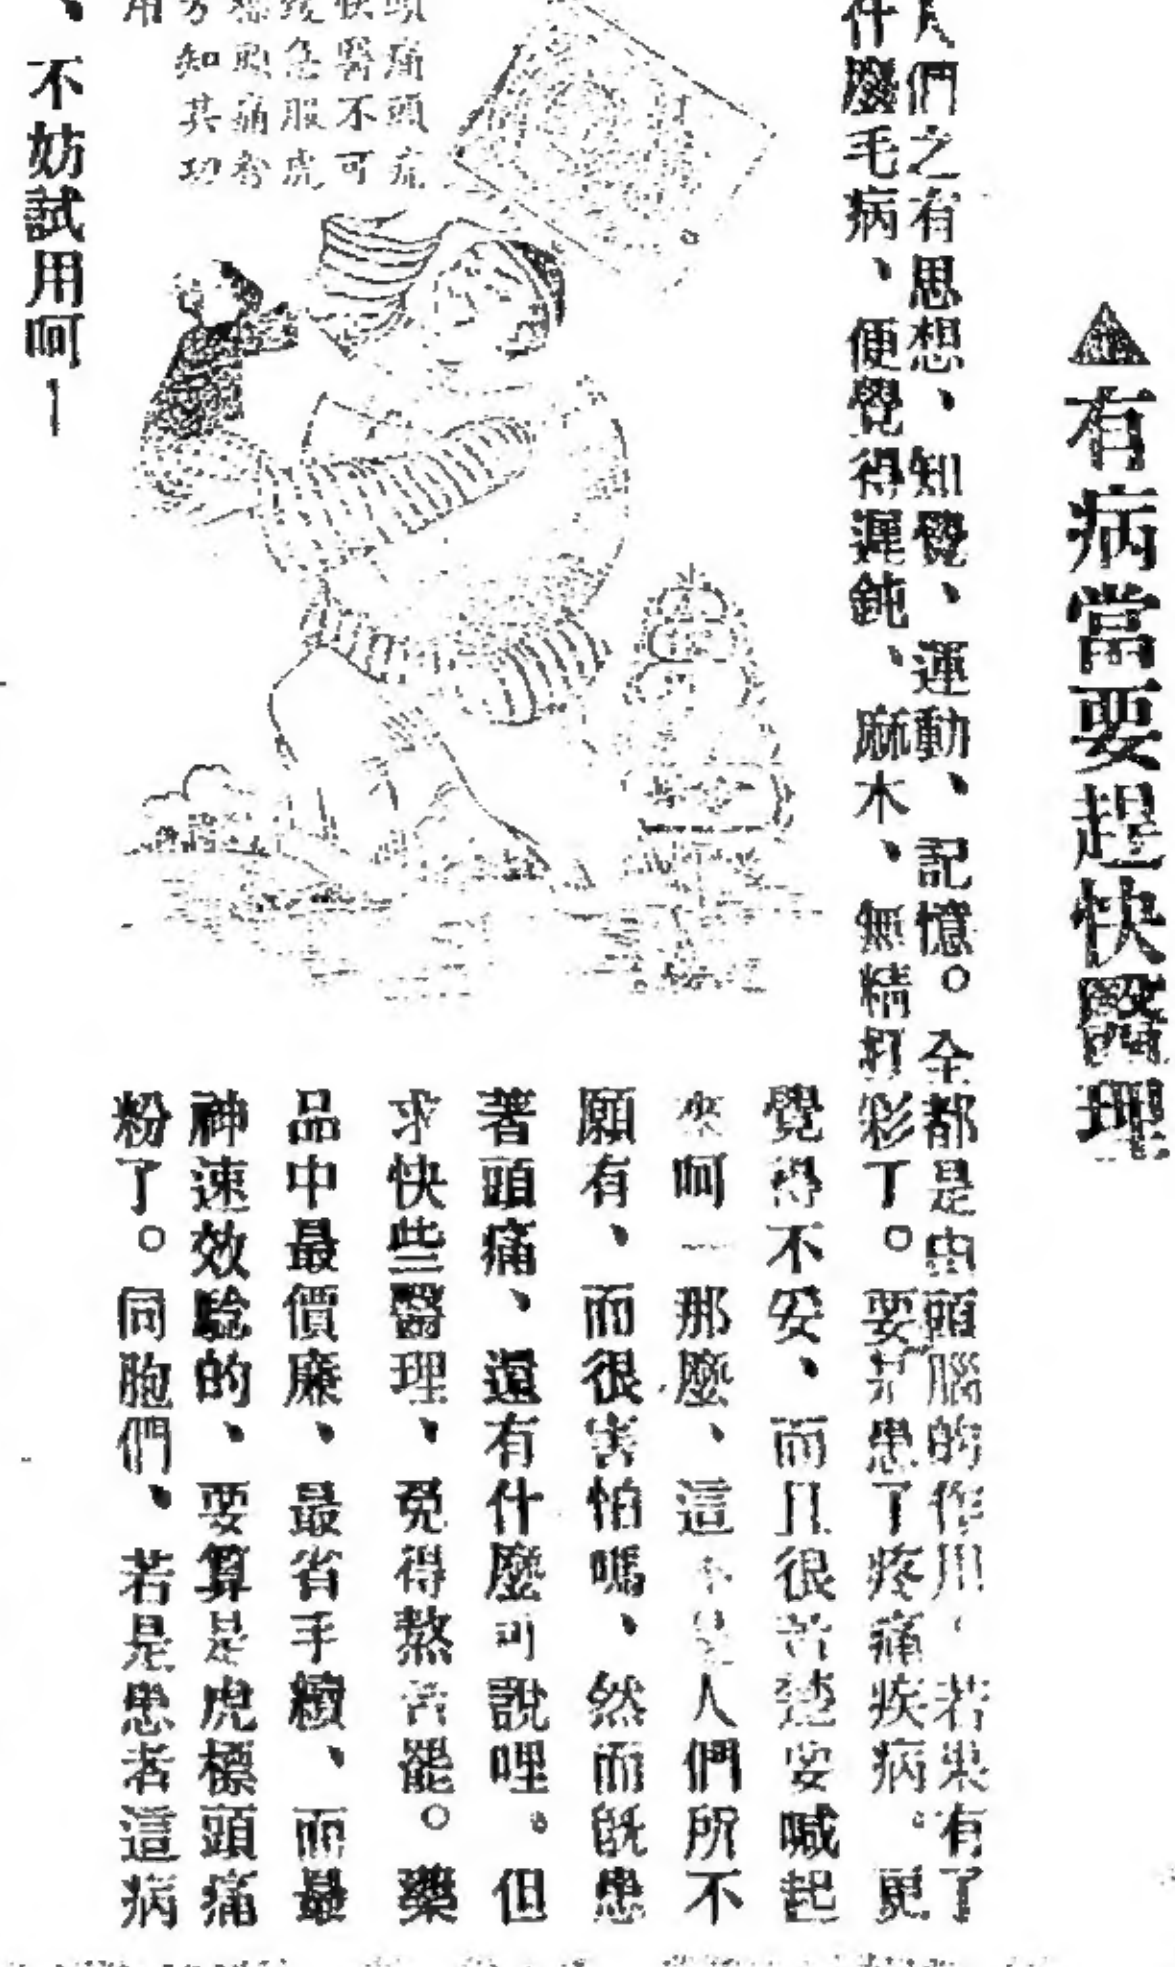 有病當要趕快醫理
人們之有思想、知覺、運動、記憶。全都是由頭腦的作用、若果有了
什麼毛病、便覺得遲鈍、麻木、無精打彩了。要是患了疼痛疾病。更
覺得不妥、而且很苦楚要喊起
來呵—那麼、這不是人們所不
願有、而很害怕嗎、然而旣患
著頭痛、還有什麼可說哩。但
求快些醫理、免得熬苦罷。藥
品中最價廉、最省手續、而最
神速效驗的、要算是虎標頭痛
粉了。同胞們、若是患者這病
、不妨試用呵—
頭痛頭疼
快醫不可
緩急服虎
標頭痛粉
方知其功
用